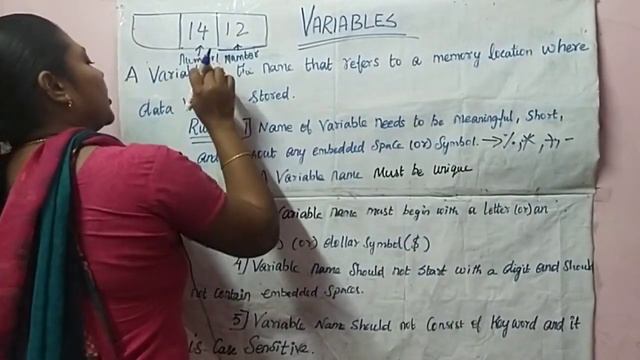 14 12
VARIABLES
number
A Variable name that refers to a memory location where
data stored.
1] Name of Variable needs to be meaningful, short,
and out any embedded Space (or) Symbol. → %, *, +, -
Variable name Must be unique
Variable name must begin with a letter (or) an
(or) dollar symbol ($)
4] Variable name should not start with a digit and should
not contain embedded spaces.
5] Variable Name should not consist of Keyword and it
is Case Sensitive.